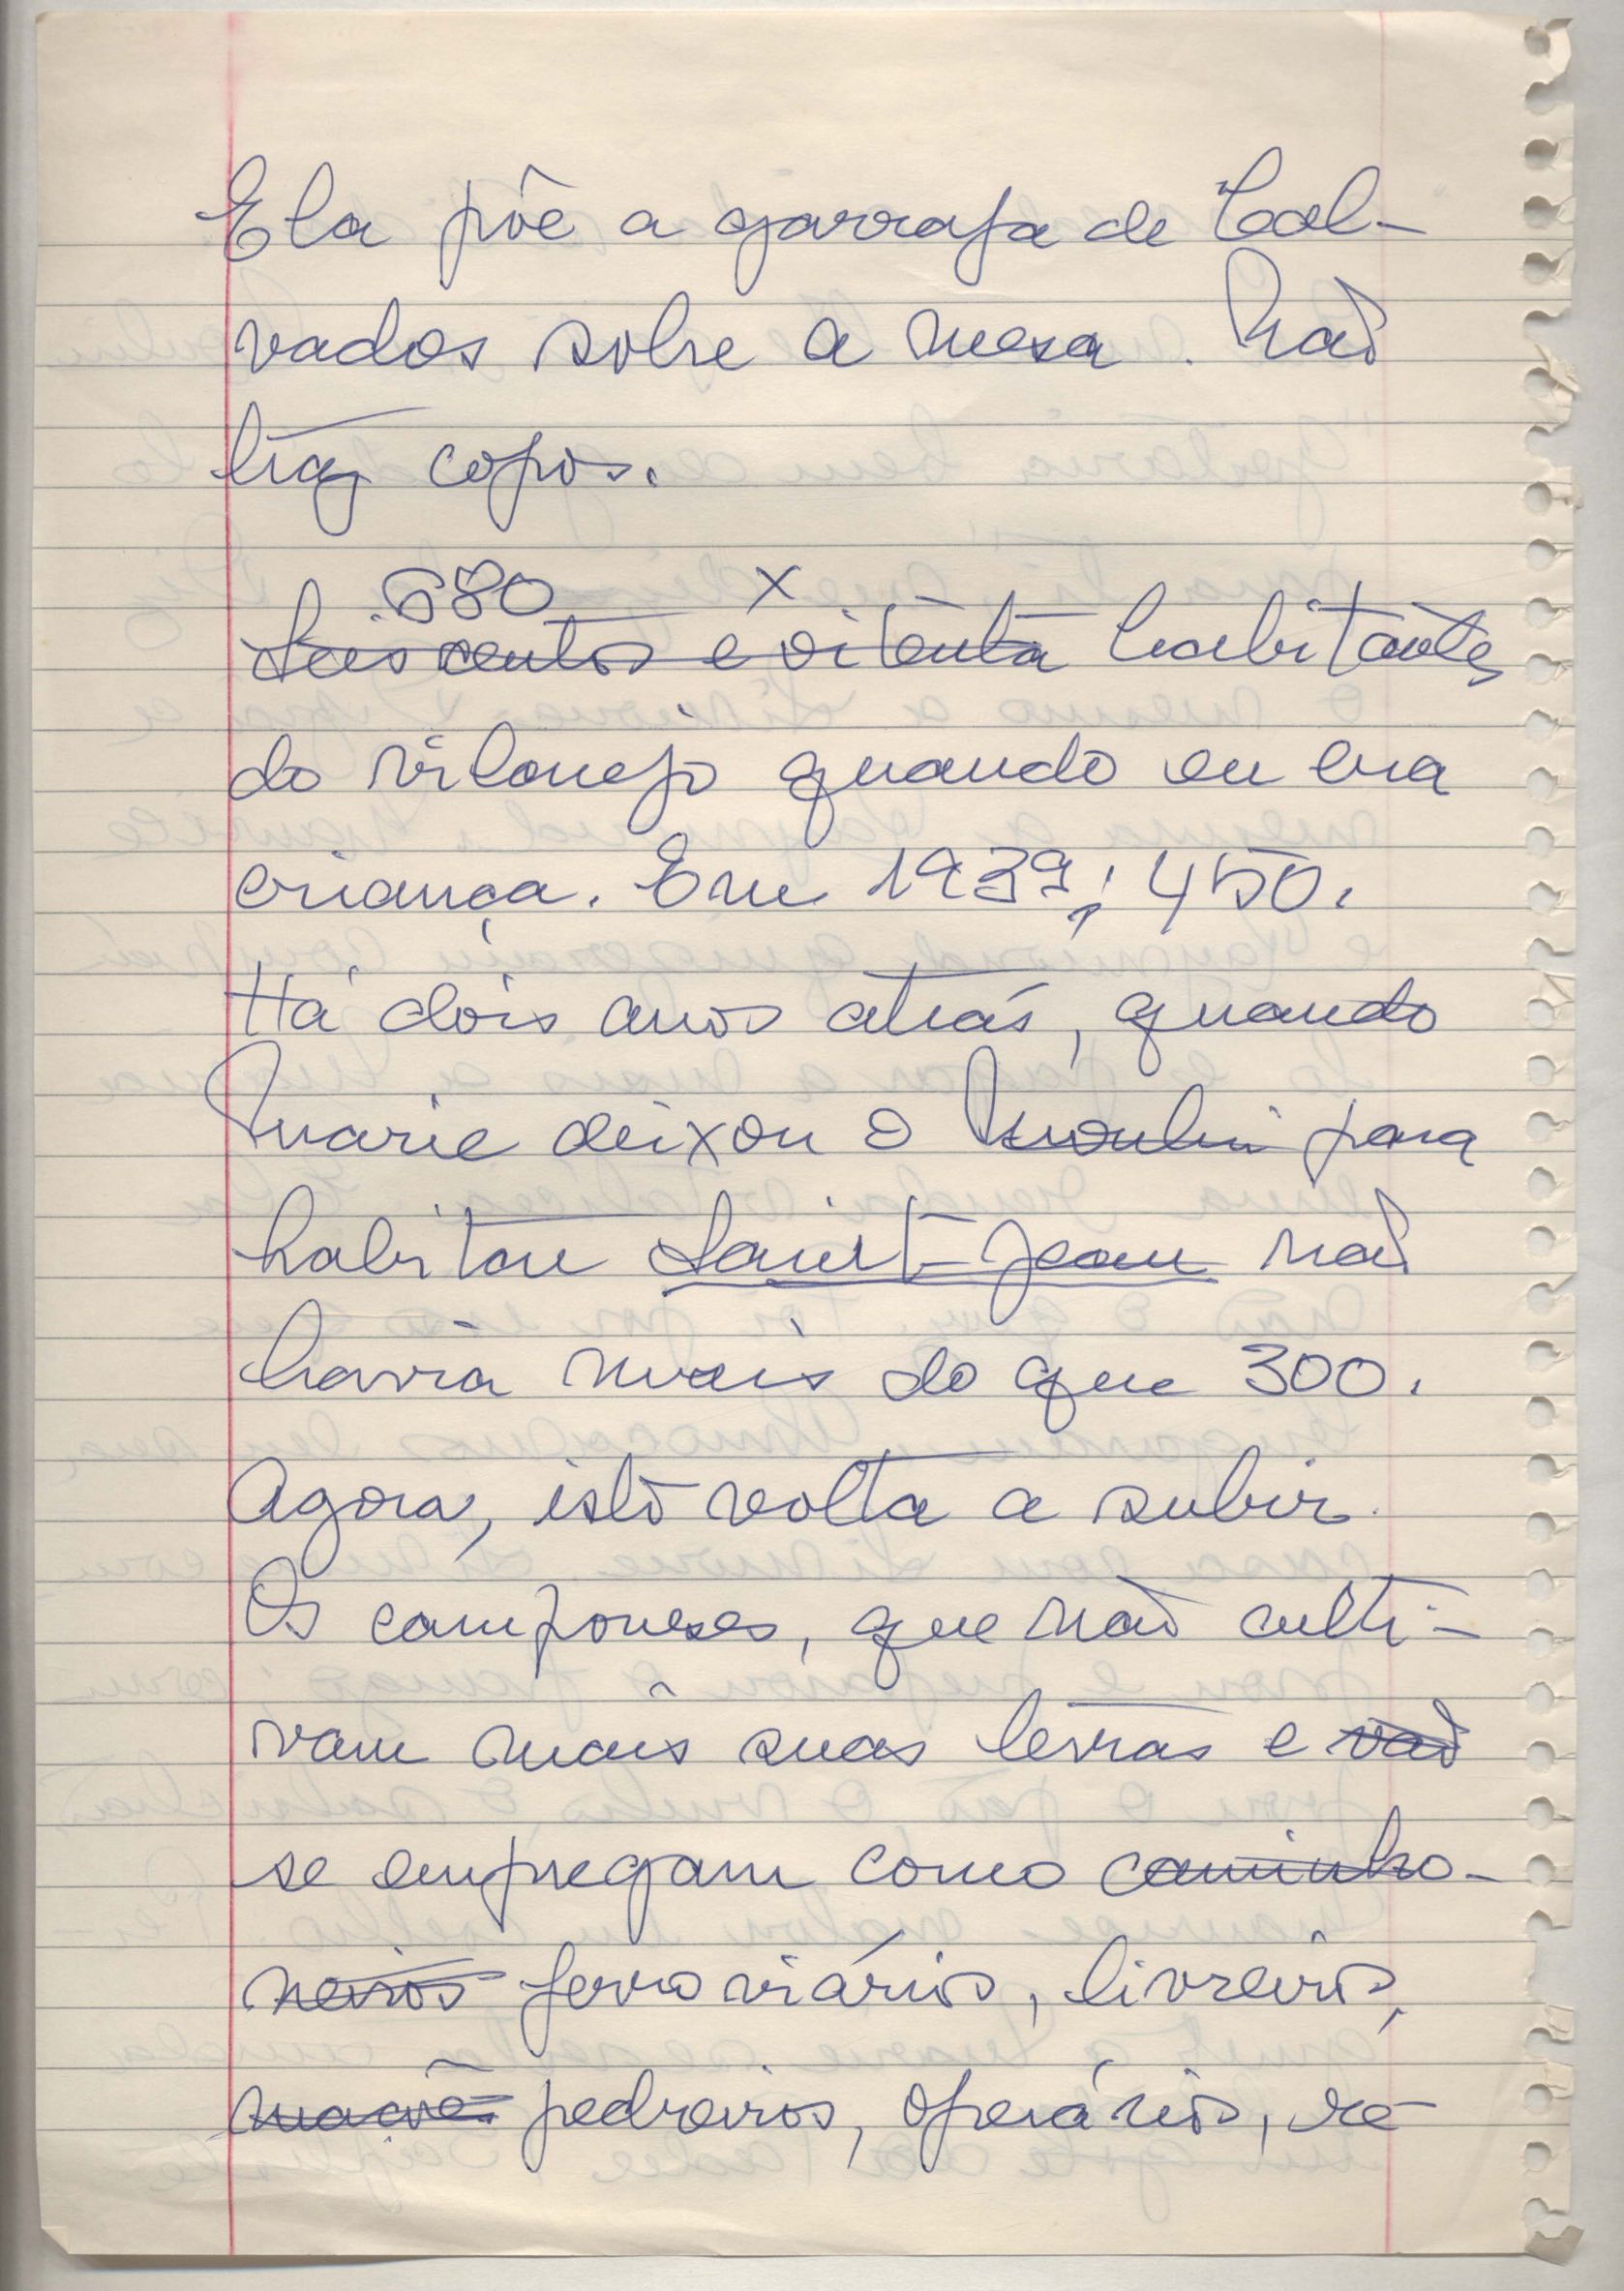 Ela põe a garrafa de Cal-
vados sobre a mesa. Não
traz copos.
680 x
Seiscentos e oitenta habitantes
do vilarejo quando eu era
criança. Em 1939, : 450.
Há dois anos atrás, quando
Marie deixou o Moulin para
habitar Saint-Jean não
havia mais do que 300.
Agora, isto volta a subir.
Os camponeses, que não culti-
vam mais suas terras e vão
se empregam como caminho-
neiros ferroviários, livreiros,
pedreiros, operários, re-